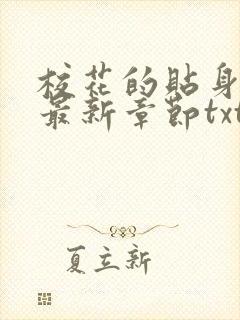 校花的贴身
最新章节txt
夏立新